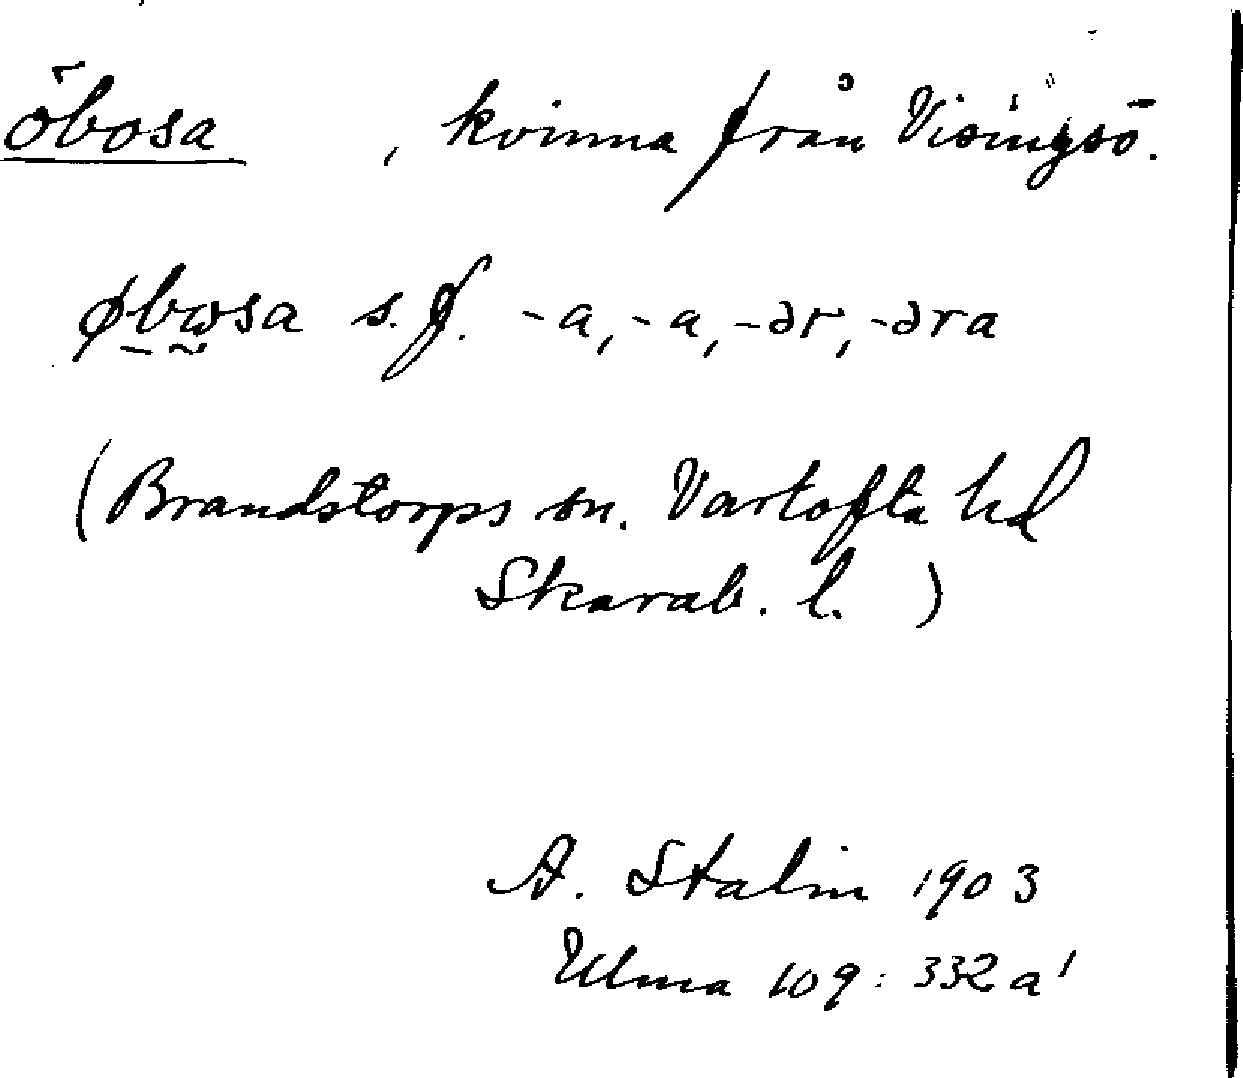 öbosa , kvinna från Visingsö.
øbɷsa s.f. -a, -a, -ər, -əra
(Brandstorps sn. Vartofta hd
Skarab. l. )
A. Stalin 1903
Ulma 109: 332 a¹